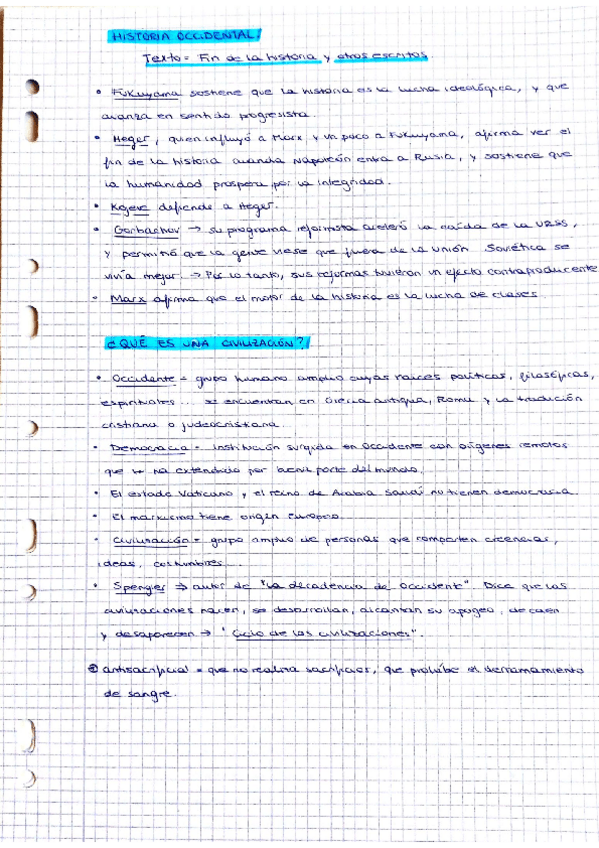 HISTORIA OCCIDENTAL:
Texto = Fin de la historia y otros escritos.
• Fukuyama sostiene que la historia es la lucha ideológica, y que
avanza en sentido progresista.
• Heger, quien influyó a Marx y un poco a Fukuyama, afirma ver el
fin de la historia cuando Napoleón entra a Rusia, y sostiene que
la humanidad prospera por la integridad.
• Kojeve defiende a Heger.
• Gorbachov → su programa reformista aceleró la caída de la URSS,
y permitió que la gente viese que fuera de la Unión Soviética se
vivía mejor. → Por lo tanto, sus reformas tuvieron un efecto contraproducente
• Marx afirma que el motor de la historia es la lucha de clases
¿QUÉ ES UNA CIVILIZACIÓN?
• Occidente = grupo humano amplio cuyas raíces políticas, filosóficas,
espirituales... se encuentran en Grecia antigua, Roma y la tradición
cristiana o judeocristiana.
• Democracia = institución surgida en Occidente con orígenes remotos
que se ha extendido por buena parte del mundo.
• El estado Vaticano y el reino de Arabia Saudí no tienen democracia.
• El marxismo tiene origen europeo.
• Civilización = grupo amplio de personas que comparten creencias,
ideas, costumbres...
• Spengler ⇒ autor de "La decadencia de Occidente" Dice que las
civilizaciones nacen, se desarrollan, alcanzan su apogeo, decaen
y desaparecen → "Ciclo de las civilizaciones".
antisacrificial = que no realiza sacrificios, que prohíbe el derramamiento
de sangre.